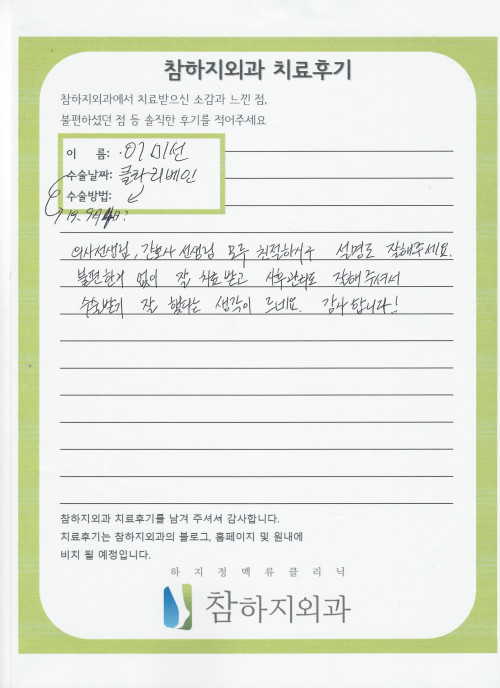 참하지외과 치료후기
참하지외과에서 치료받으신 소감과 느낀 점,
불편하셨던 점 등 솔직한 후기를 적어주세요
이 름: 이미선
수술날짜: 클라리베인
수술방법:
19.
의사선생님, 간호사 선생님 모두 친절하시구 설명도 잘해주세요.
불편한거 없이 잘 치료받고 사후관리도 잘해주셔서
수술받기 잘 했다는 생각이 드네요. 감사합니다!
참하지외과 치료후기를 남겨 주셔서 감사합니다.
치료후기는 참하지외과의 블로그, 홈페이지 및 원내에
비치 될 예정입니다.
하지정맥류클리닉
참하지외과